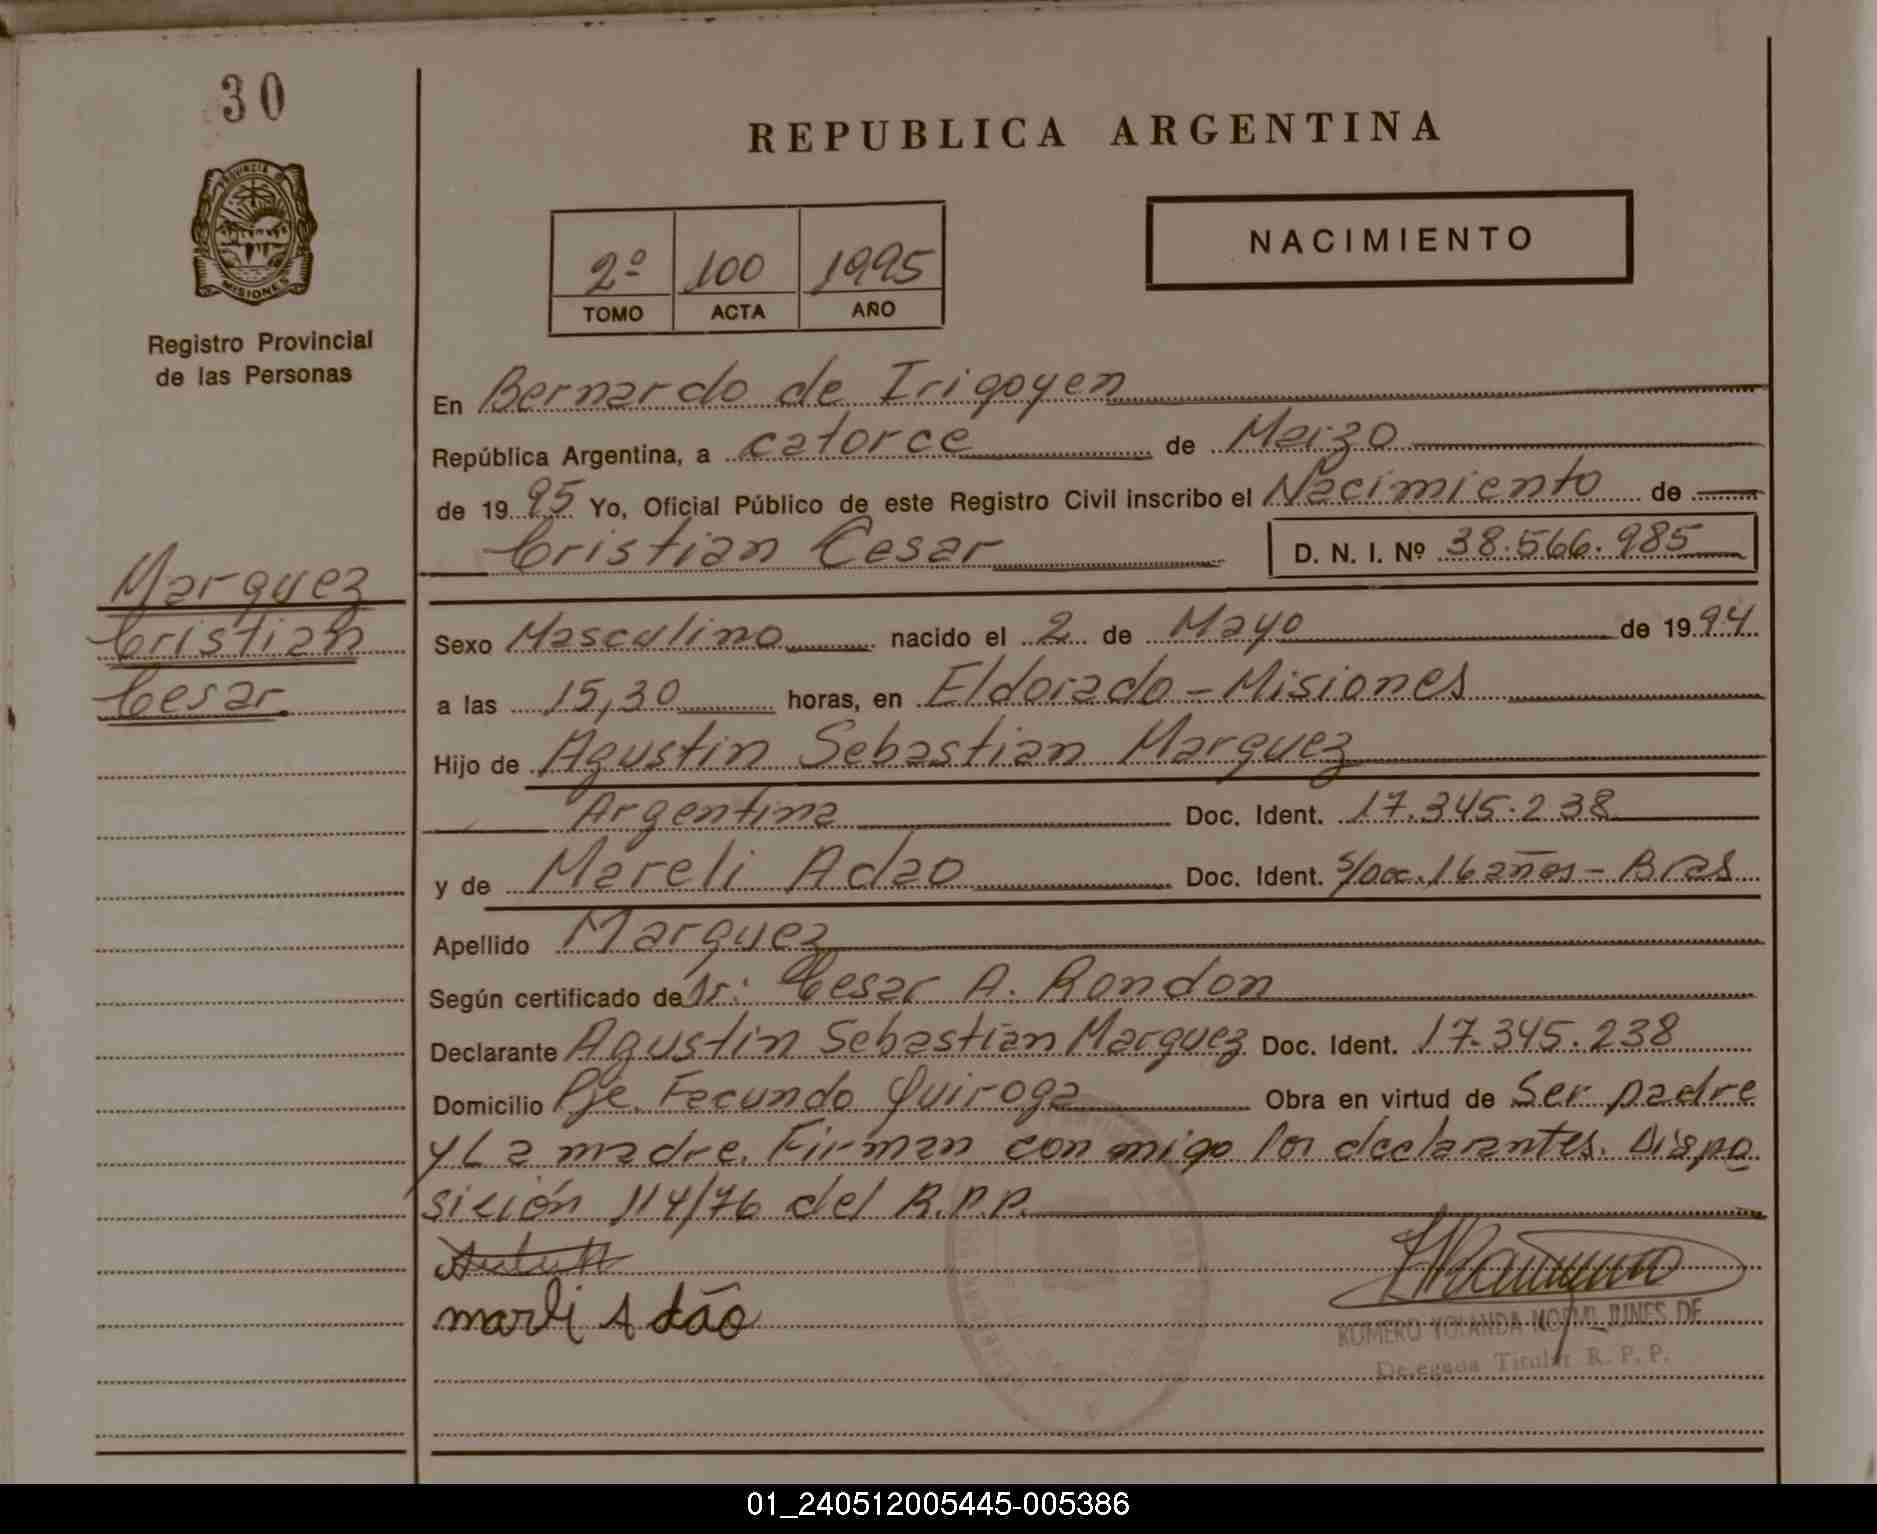 30
PROVINCIA D
MISIONES
Registro Provincial
de las Personas
Marquez
Cristian
Cesar
REPUBLICA ARGENTINA
2º 100 1995
TOMO ACTA AÑO
NACIMIENTO
En Bernardo de Irigoyen
República Argentina, a catorce de Marzo
de 1995 Yo, Oficial Público de este Registro Civil inscribo el Nacimiento de
Cristian Cesar D. N. I. Nº 38.566.985
Sexo Masculino nacido el 2 de Mayo de 1994
a las 15,30 horas, en Eldorado - Misiones
Hijo de Agustin Sebastian Marquez
Argentina Doc. Ident. 17.345.238
y de Mareli Adao Doc. Ident. S/Doc. 16 años - Bras
Apellido Marquez
Según certificado de Dr: Cesar A. Rondon
Declarante Agustin Sebastian Marquez Doc. Ident. 17.345.238
Domicilio Pje. Facundo Quiroga Obra en virtud de Ser padre
y La madre. Firman con migo los declarantes. Dispo
sición 114/76 del R.P.P.
marli Adão
ROMERO YOLANDA NOEMI JUNES DE
Delegada Titular R. P. P.
01_240512005445-005386